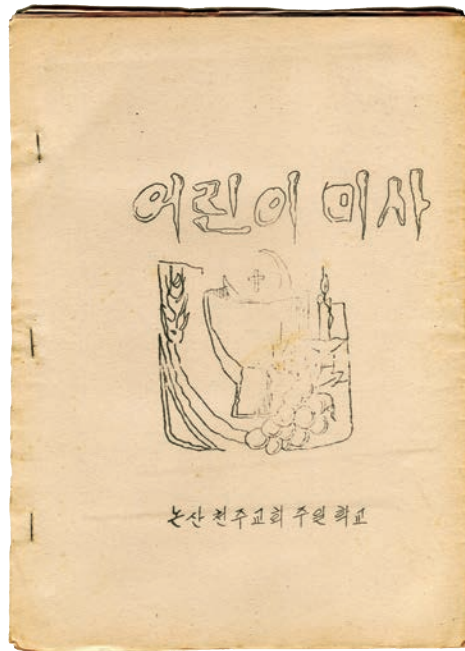 어린이 미사
논산 천주교회 주일 학교